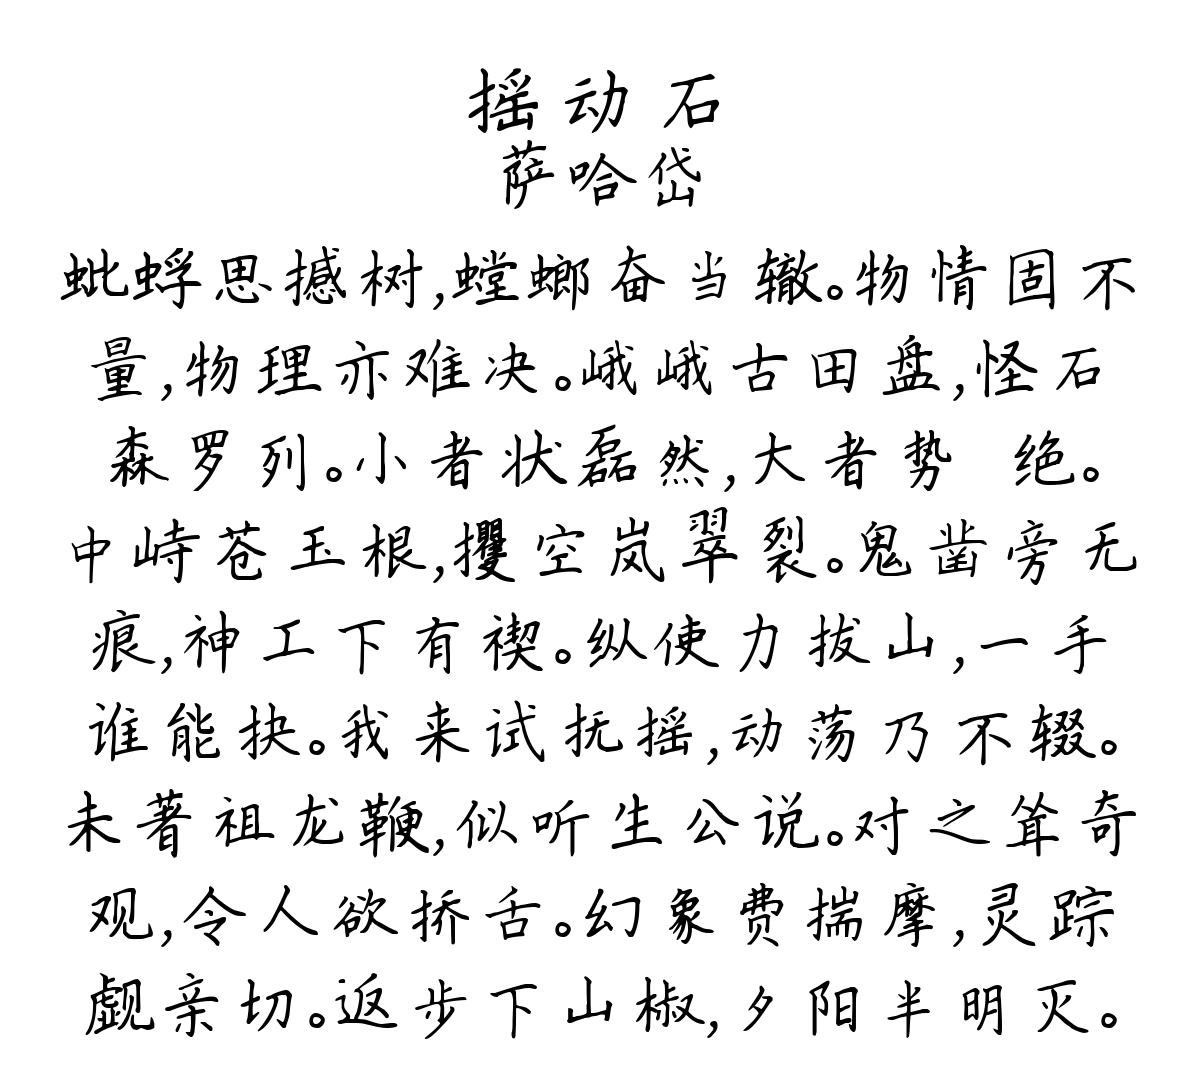 摇动石
萨哈岱
蚍蜉思撼树,螳螂奋当辙。物情固不
量,物理亦难决。峨峨古田盘,怪石
森罗列。小者状磊然,大者势 绝。
中峙苍玉根,攫空岚翠裂。鬼凿旁无
痕,神工下有禊。纵使力拔山,一手
谁能抉。我来试抚摇,动荡乃不辍。
未著祖龙鞭,似听生公说。对之耸奇
观,令人欲挢舌。幻象费揣摩,灵踪
觑亲切。返步下山椒,夕阳半明灭。